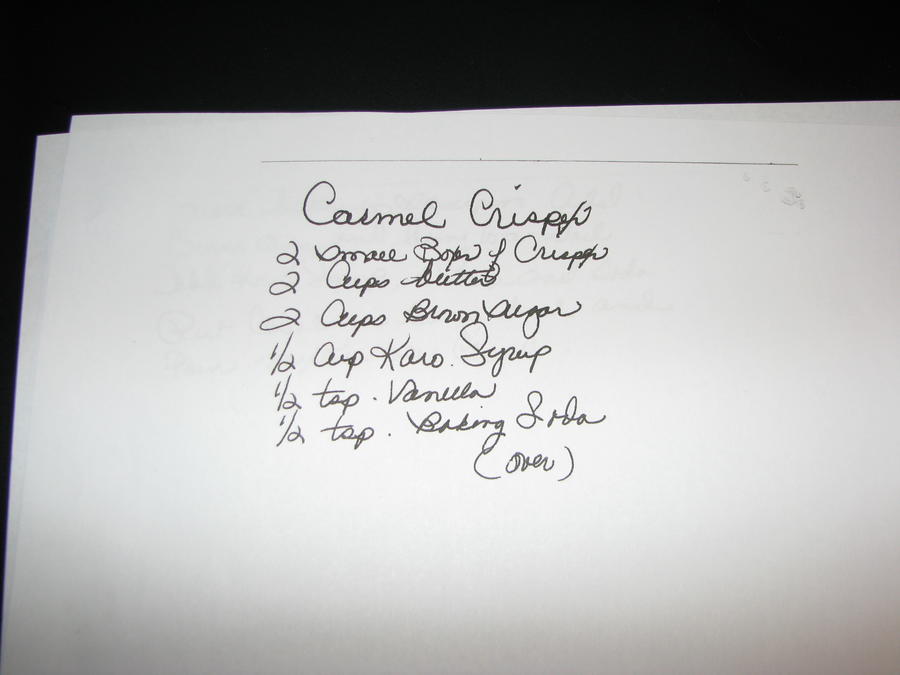 Carmel Crispp
2 Small Boxes of Crispp
2 Cups butter
2 Cups Brown Sugar
1/2 Cup Karo. Syrup
1/2 tsp. Vanilla
1/2 tsp. Baking Soda
(over)